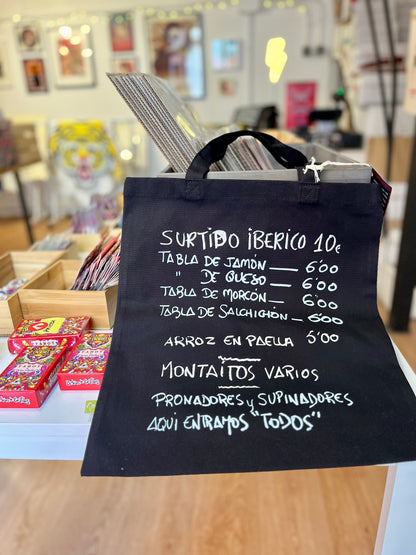 SURTIDO IBERICO 10€
TABLA DE JAMÓN — 6'00
" DE QUESO — 6'00
TABLA DE MORCÓN — 6'00
TABLA DE SALCHICHÓN — 6'00
ARROZ EN PAELLA 5'00
MONTAITOS VARIOS
PRONADORES y SUPINADORES
AQUI ENTRAMOS "TODOS"